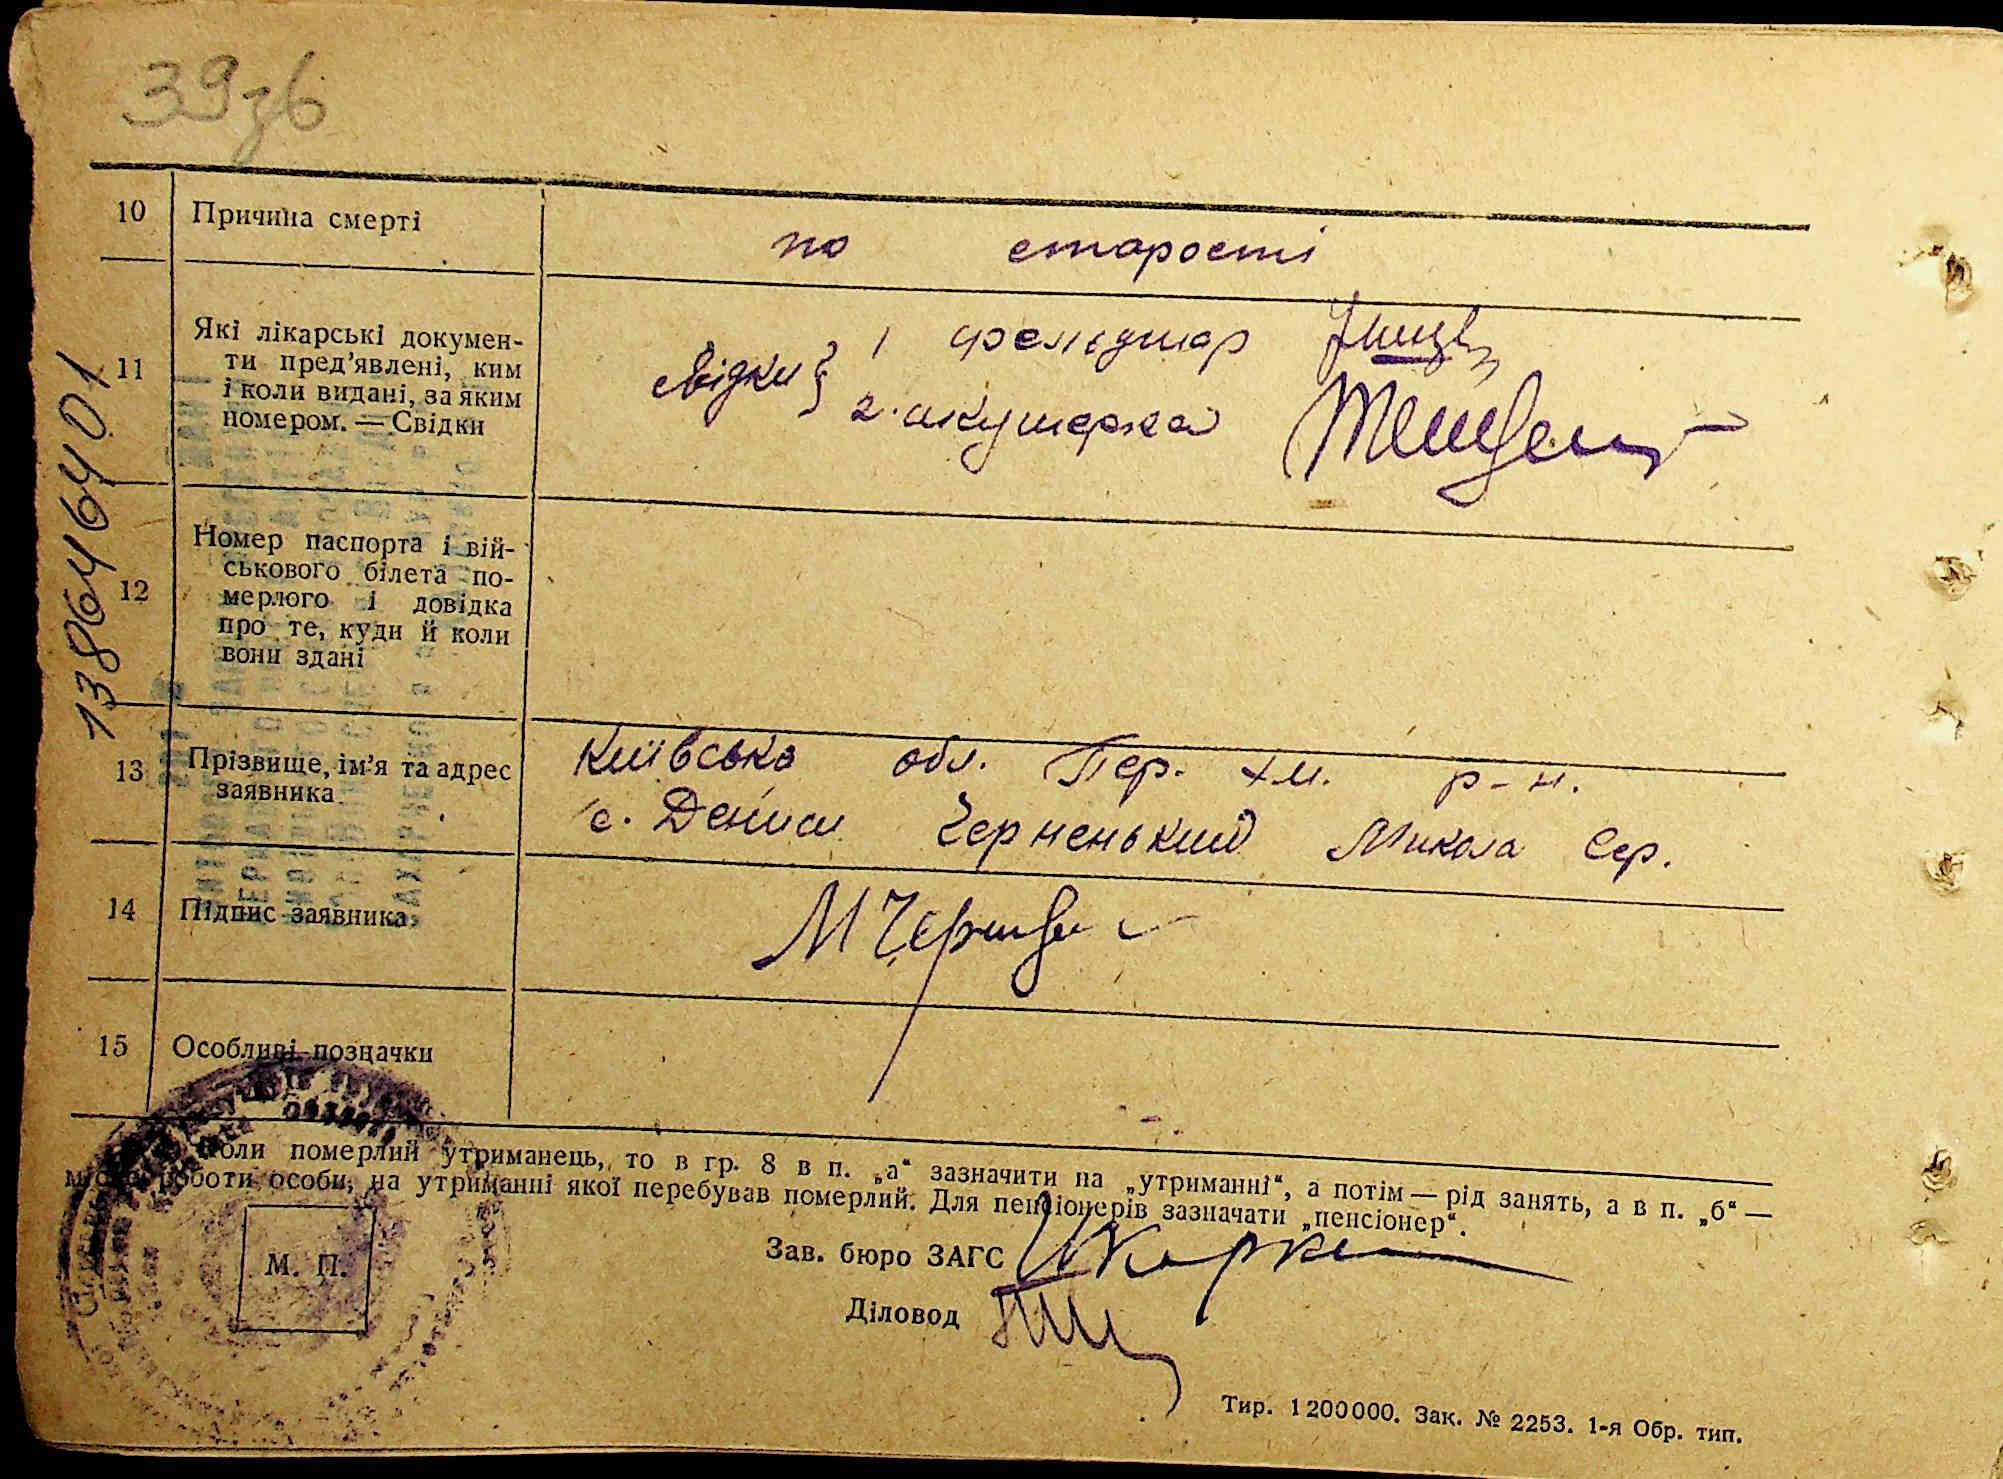 39зв
10 Причина смерті
по старості
11 Які лікарські докумен-
ти пред’явлені, ким
і коли видані, за яким
номером. — Свідки
свідки } 1 фельдшер
2. акушерка
12 Номер паспорта і вій-
ськового білета по-
мерлого і довідка
про те, куди й коли
вони здані
13 Прізвище, ім’я та адрес
заявника
Київська обл. Пер. Хм. р-н.
с. Дениси Черненький Микола Сер.
14 Підпис заявника
15 Особливі позначки
Коли померлий утриманець, то в гр. 8 в п. „а“ зазначити на „утриманні“, а потім — рід занять, а в п. „б“ —
місце роботи особи, на утриманні якої перебував померлий. Для пенсіонерів зазначати „пенсіонер“.
М. П.
Зав. бюро ЗАГС
Діловод
Тир. 1200000. Зак. № 2253. 1-я Обр. тип.
1386446401